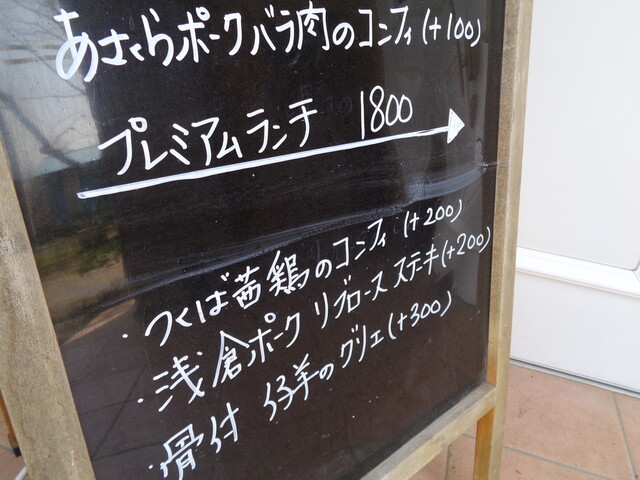 あさくらポークバラ肉のコンフィ(+100)
プレミアムランチ 1800
・つくば茜鶏のコンフィ(+200)
・浅倉ポークリブロースステキ(+200)
・骨付仔羊のグリエ(+300)